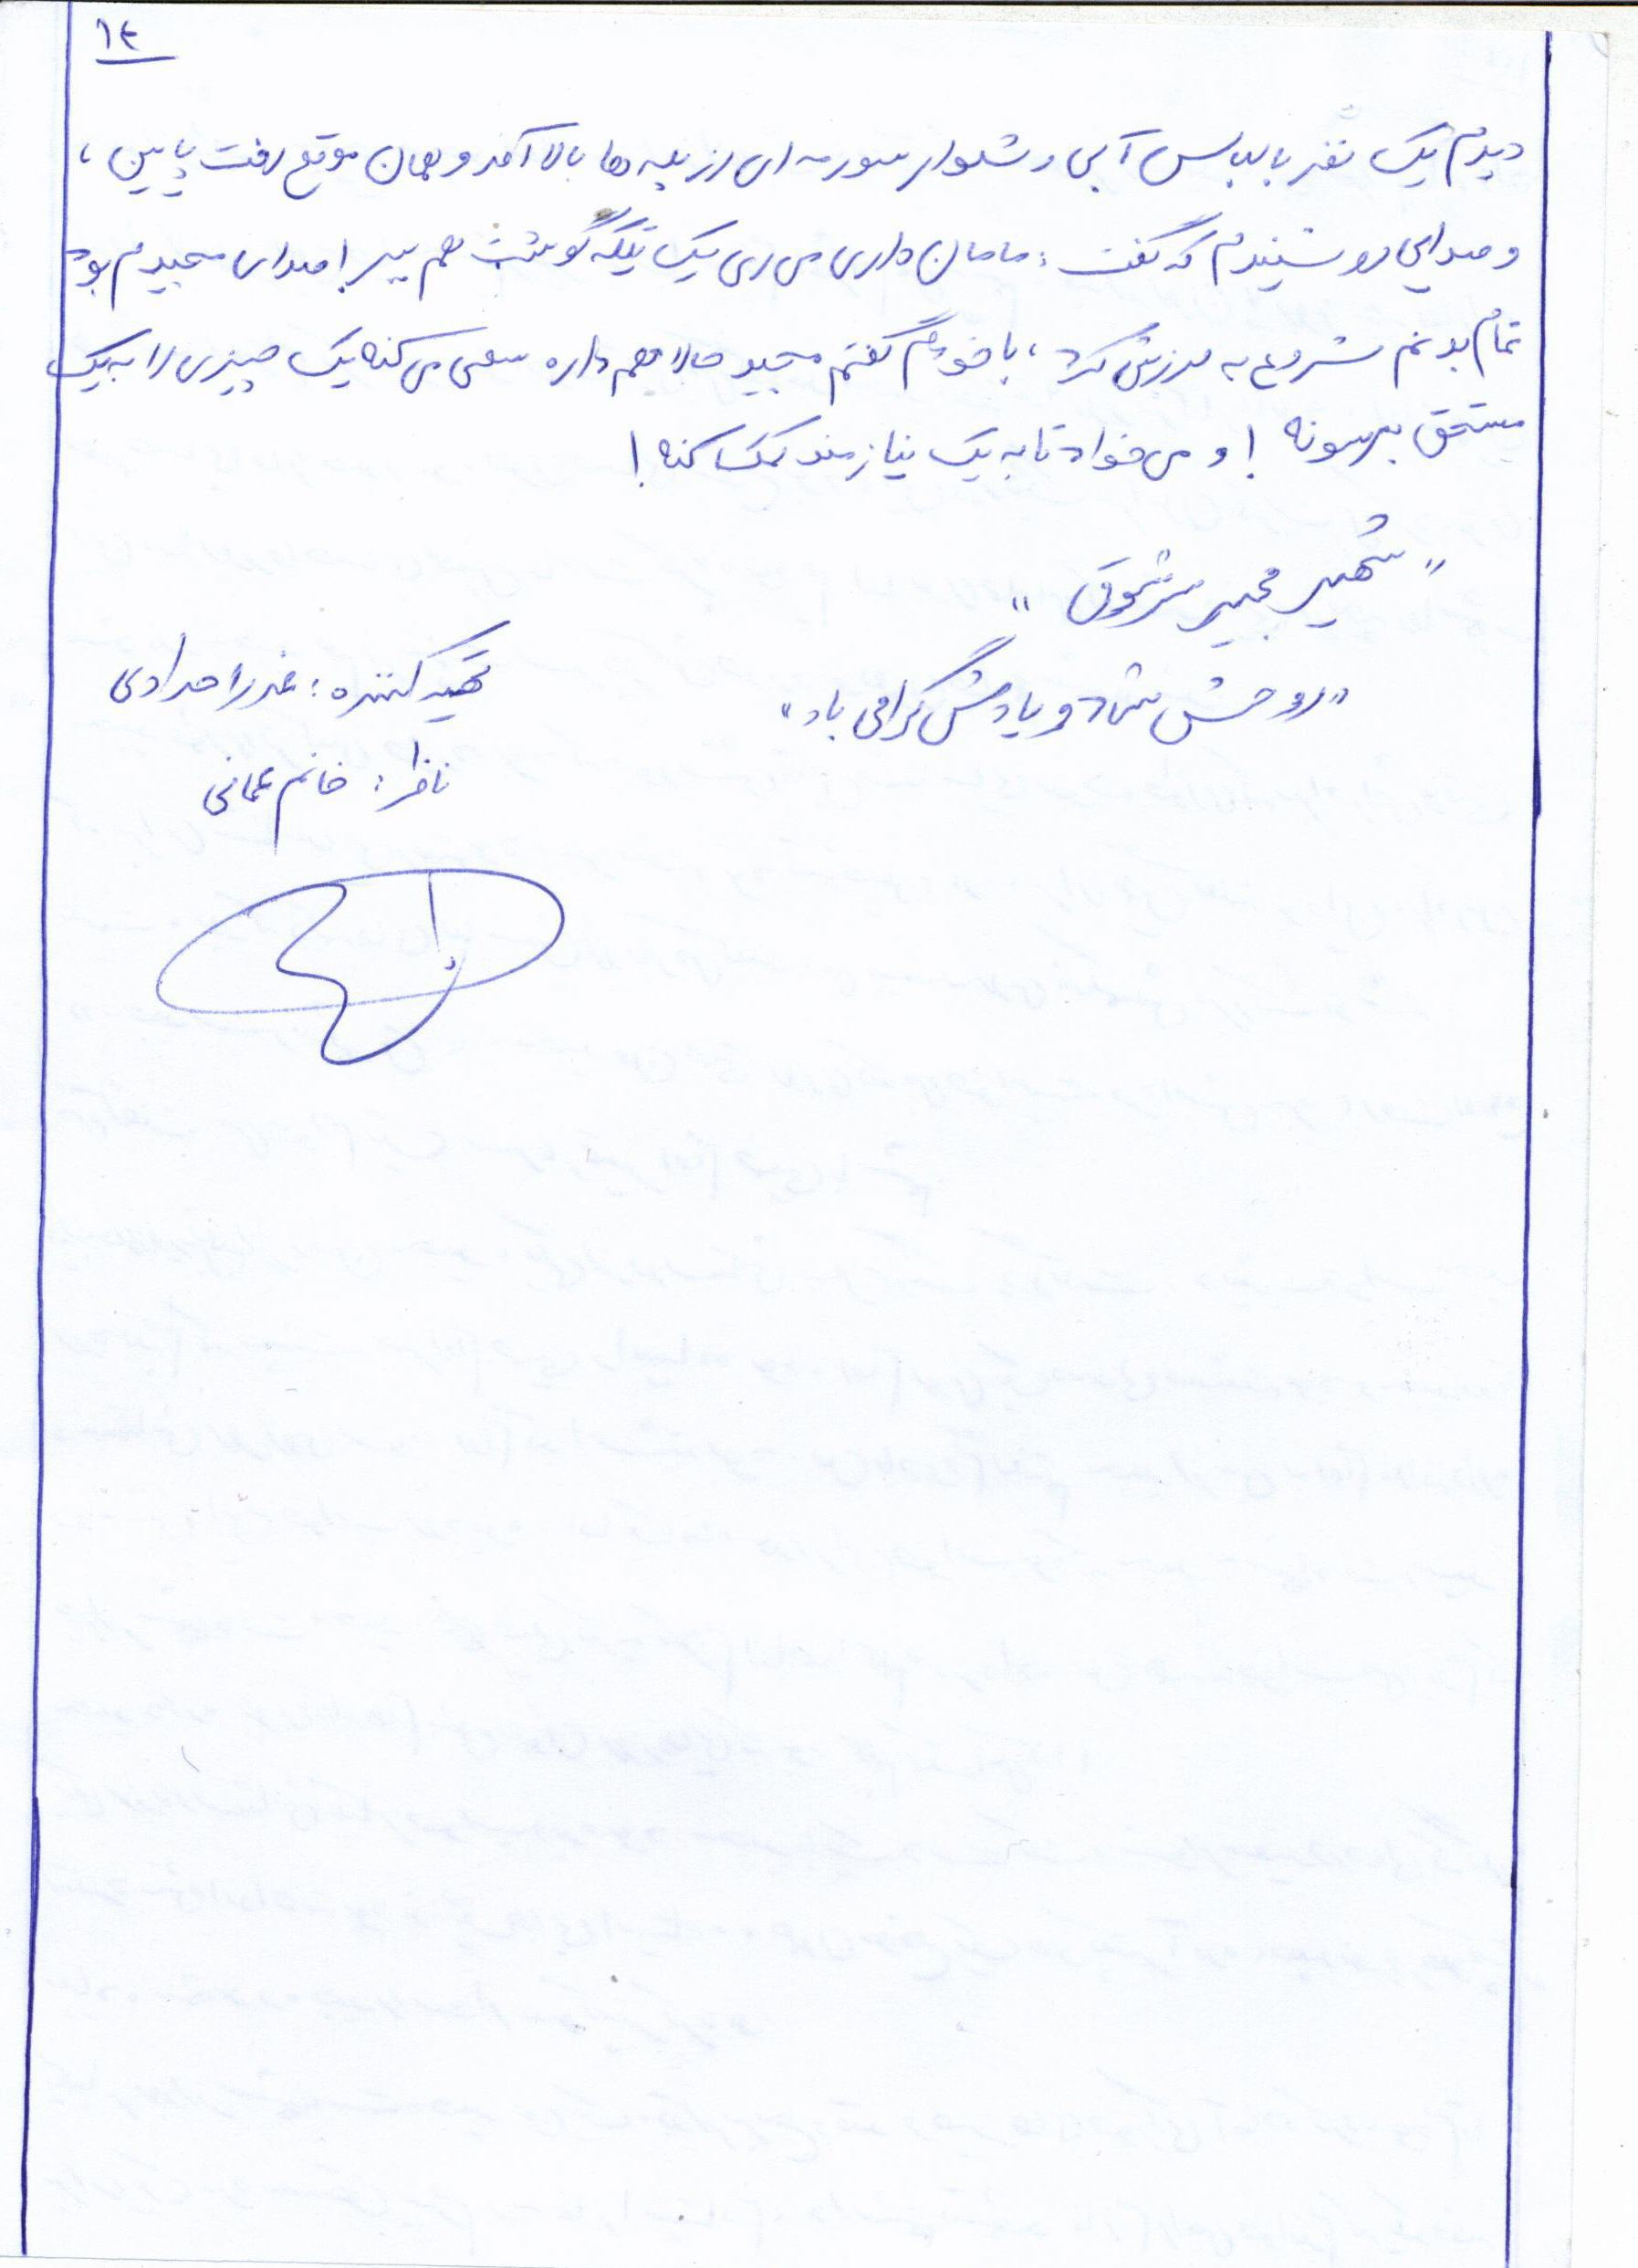 ۱۴
دیدم یک نفر با لباس آبی و شلوار سورمه ای از پله ها بالا آمد و همان موقع رفت پایین ،
و صدایی رو شنیدم که گفت : مامان داری می ری یک تیکه گوشت هم ببر ! صدای مجیدم بود
تمام بدنم شروع به لرزش کرد ، با خودم گفتم مجید حالا هم داره سعی می کنه یک چیزی را به یک
مستحق برسونه ! و می خواد تا به یک نیازمند کمک کنه !
" شهید مجید سرشوق "
"روحش شاد و یادش گرامی باد"
تهیه کننده : عذرا مرادی
ناظر : خانم عمانی